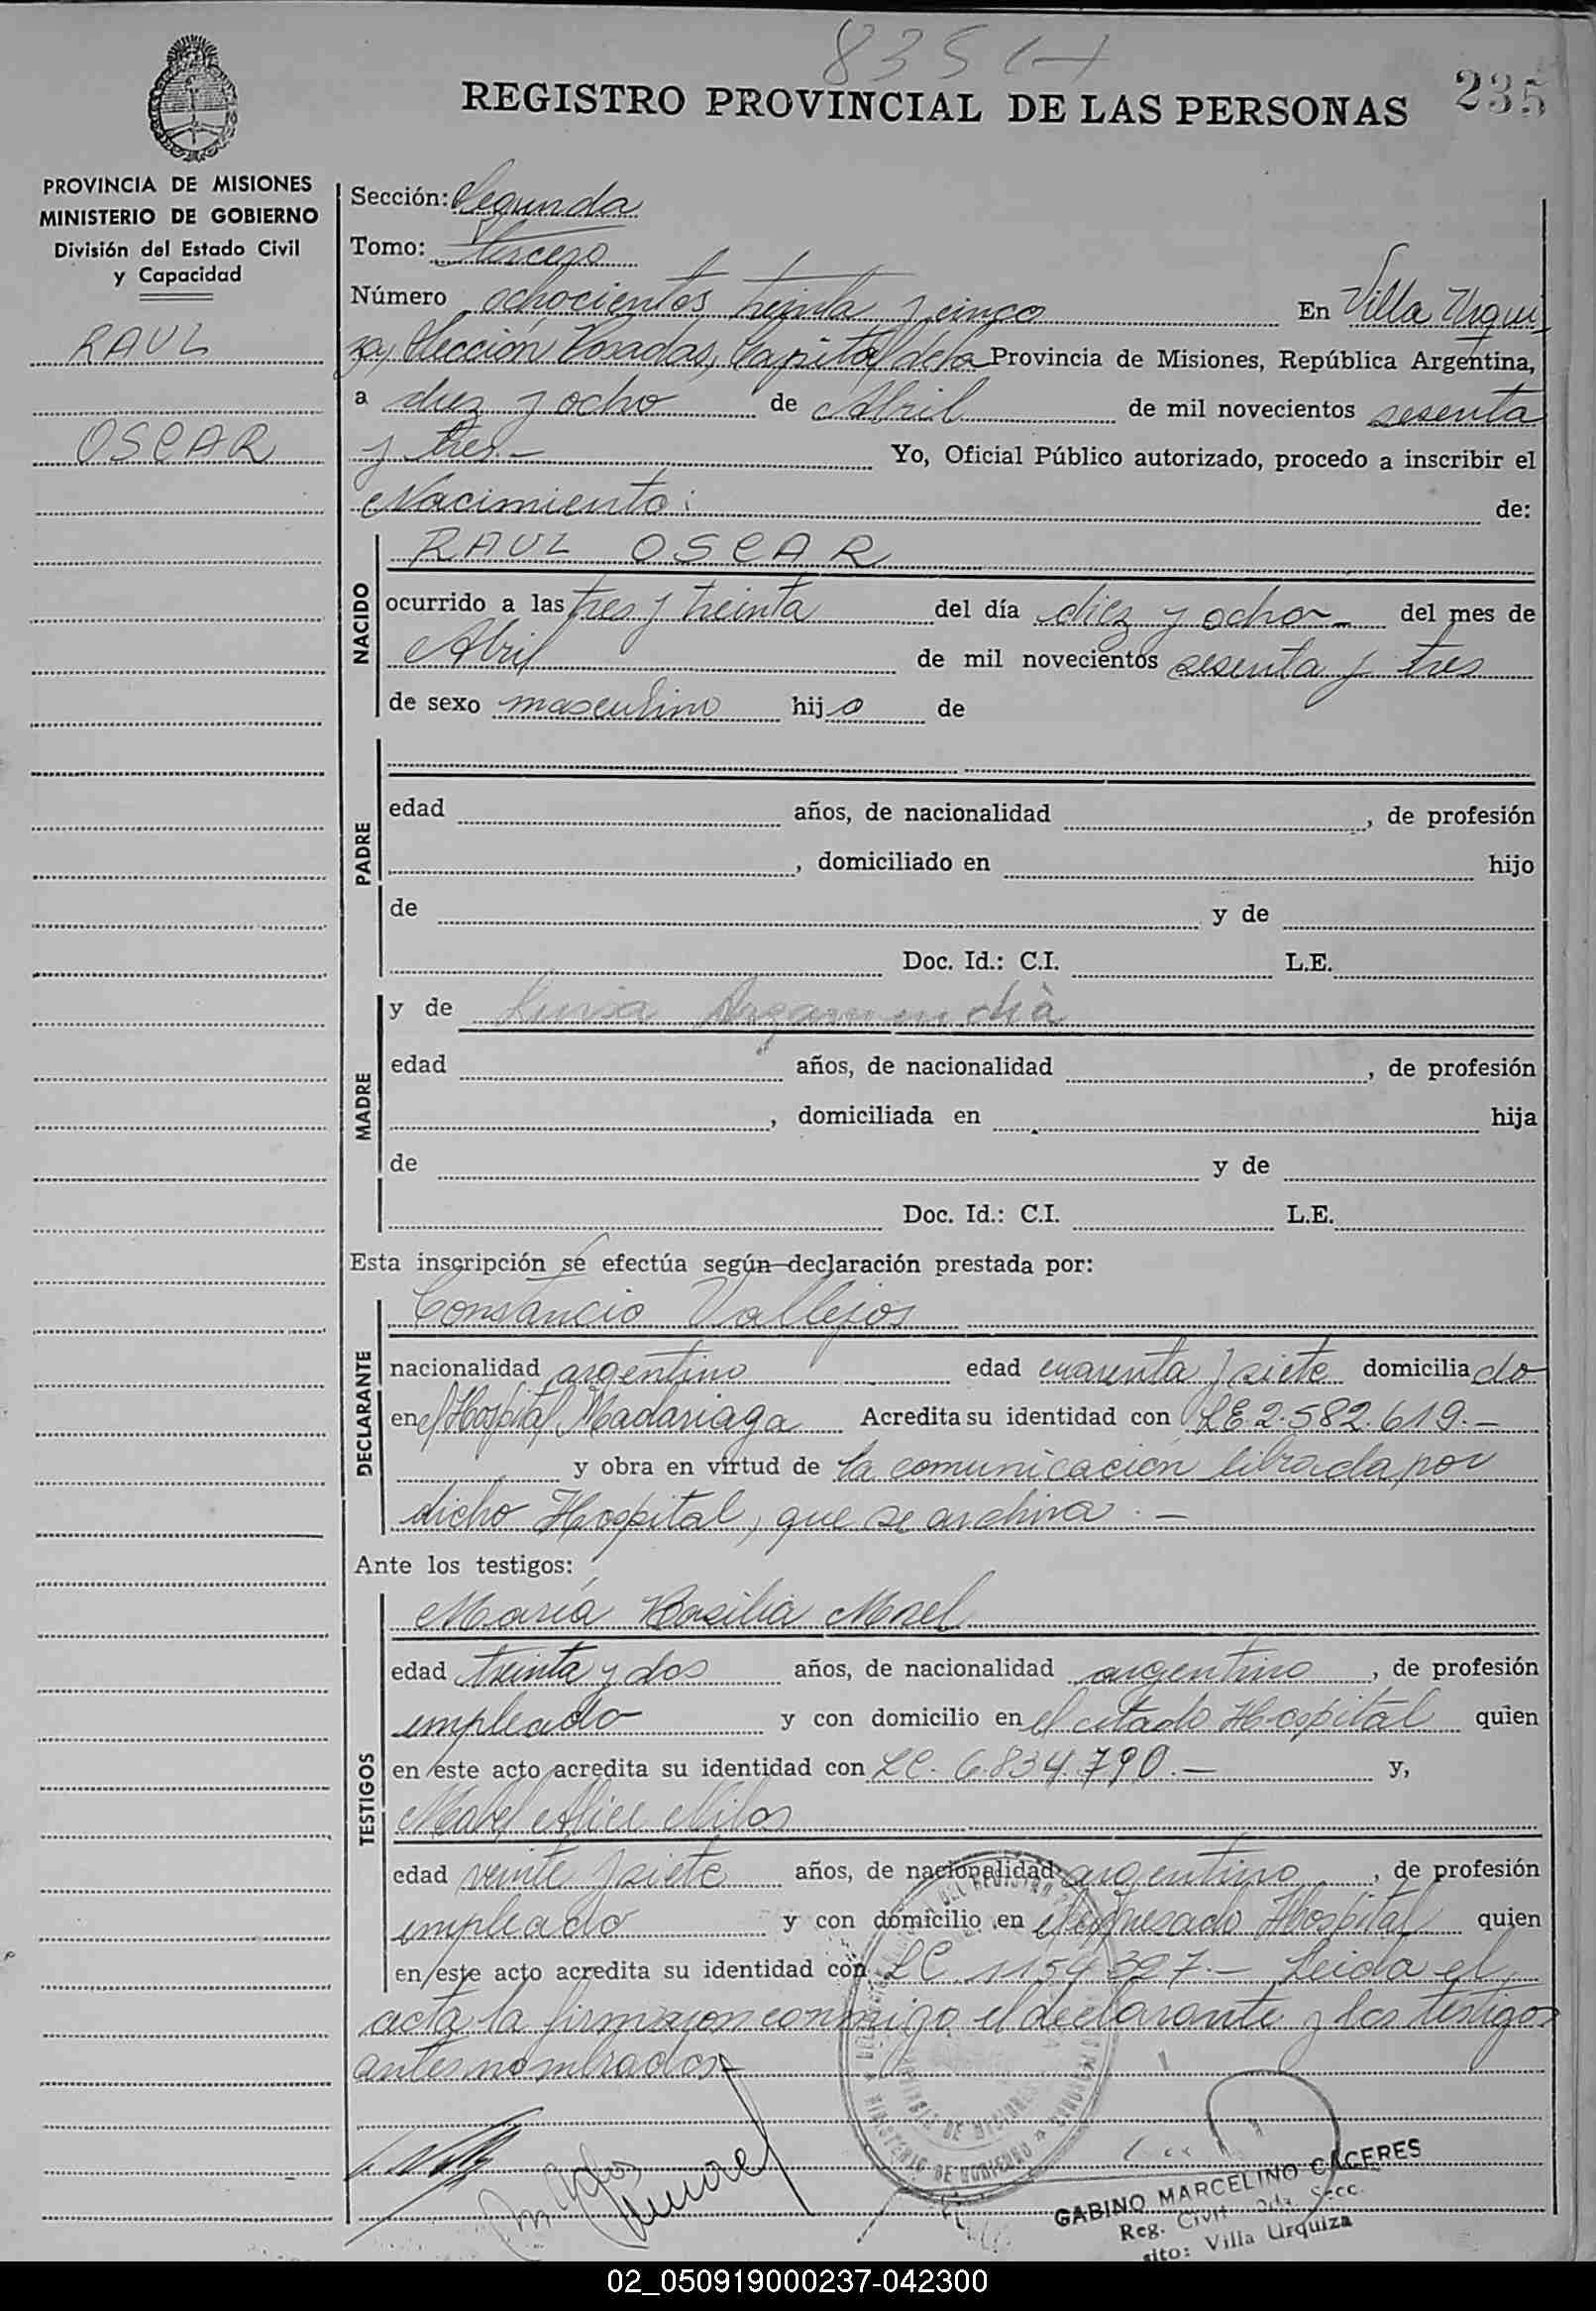 835 (-)
REGISTRO PROVINCIAL DE LAS PERSONAS
235
PROVINCIA DE MISIONES
MINISTERIO DE GOBIERNO
División del Estado Civil
y Capacidad
RAUL
OSCAR
Sección: Segunda
Tomo: tercero
Número ochocientos treinta y cinco En Villa Urqui
za, Sección Posadas, Capital de la Provincia de Misiones, República Argentina,
a diez y ocho de Abril de mil novecientos sesenta
y tres.- Yo, Oficial Público autorizado, procedo a inscribir el
Nacimiento: de:
NACIDO
RAUL OSCAR
ocurrido a las tres y treinta del día diez y ocho - del mes de
Abril de mil novecientos sesenta y tres
de sexo masculino hijo de
PADRE
edad años, de nacionalidad , de profesión
, domiciliado en hijo
de y de
Doc. Id.: C.I. L.E.
MADRE
y de Luisa
edad años, de nacionalidad , de profesión
, domiciliada en hija
de y de
Doc. Id.: C.I. L.E.
Esta inscripción se efectúa según declaración prestada por:
DECLARANTE
Constancio Vallejos
nacionalidad argentino edad cuarenta y siete domiciliado
en el Hospital Madariaga Acredita su identidad con LE. 2.582.619.-
y obra en virtud de la comunicación librada por
dicho Hospital, que se archiva. -
Ante los testigos:
TESTIGOS
María Basilia
edad treinta y dos años, de nacionalidad argentino , de profesión
empleado y con domicilio en el citado Hospital quien
en este acto acredita su identidad con LC. 6.834.790.- y,
Mabel Alice
edad veinte y siete años, de nacionalidad argentino , de profesión
empleado y con domicilio en el expresado Hospital quien
en este acto acredita su identidad con LC. 1154327.- Leida el
acta la firmaron conmigo el declarante y los testigos
antes nombrados-
GABINO MARCELINO CACERES
Reg. Civil 2da Secc.
sito: Villa Urquiza
02_050919000237-042300